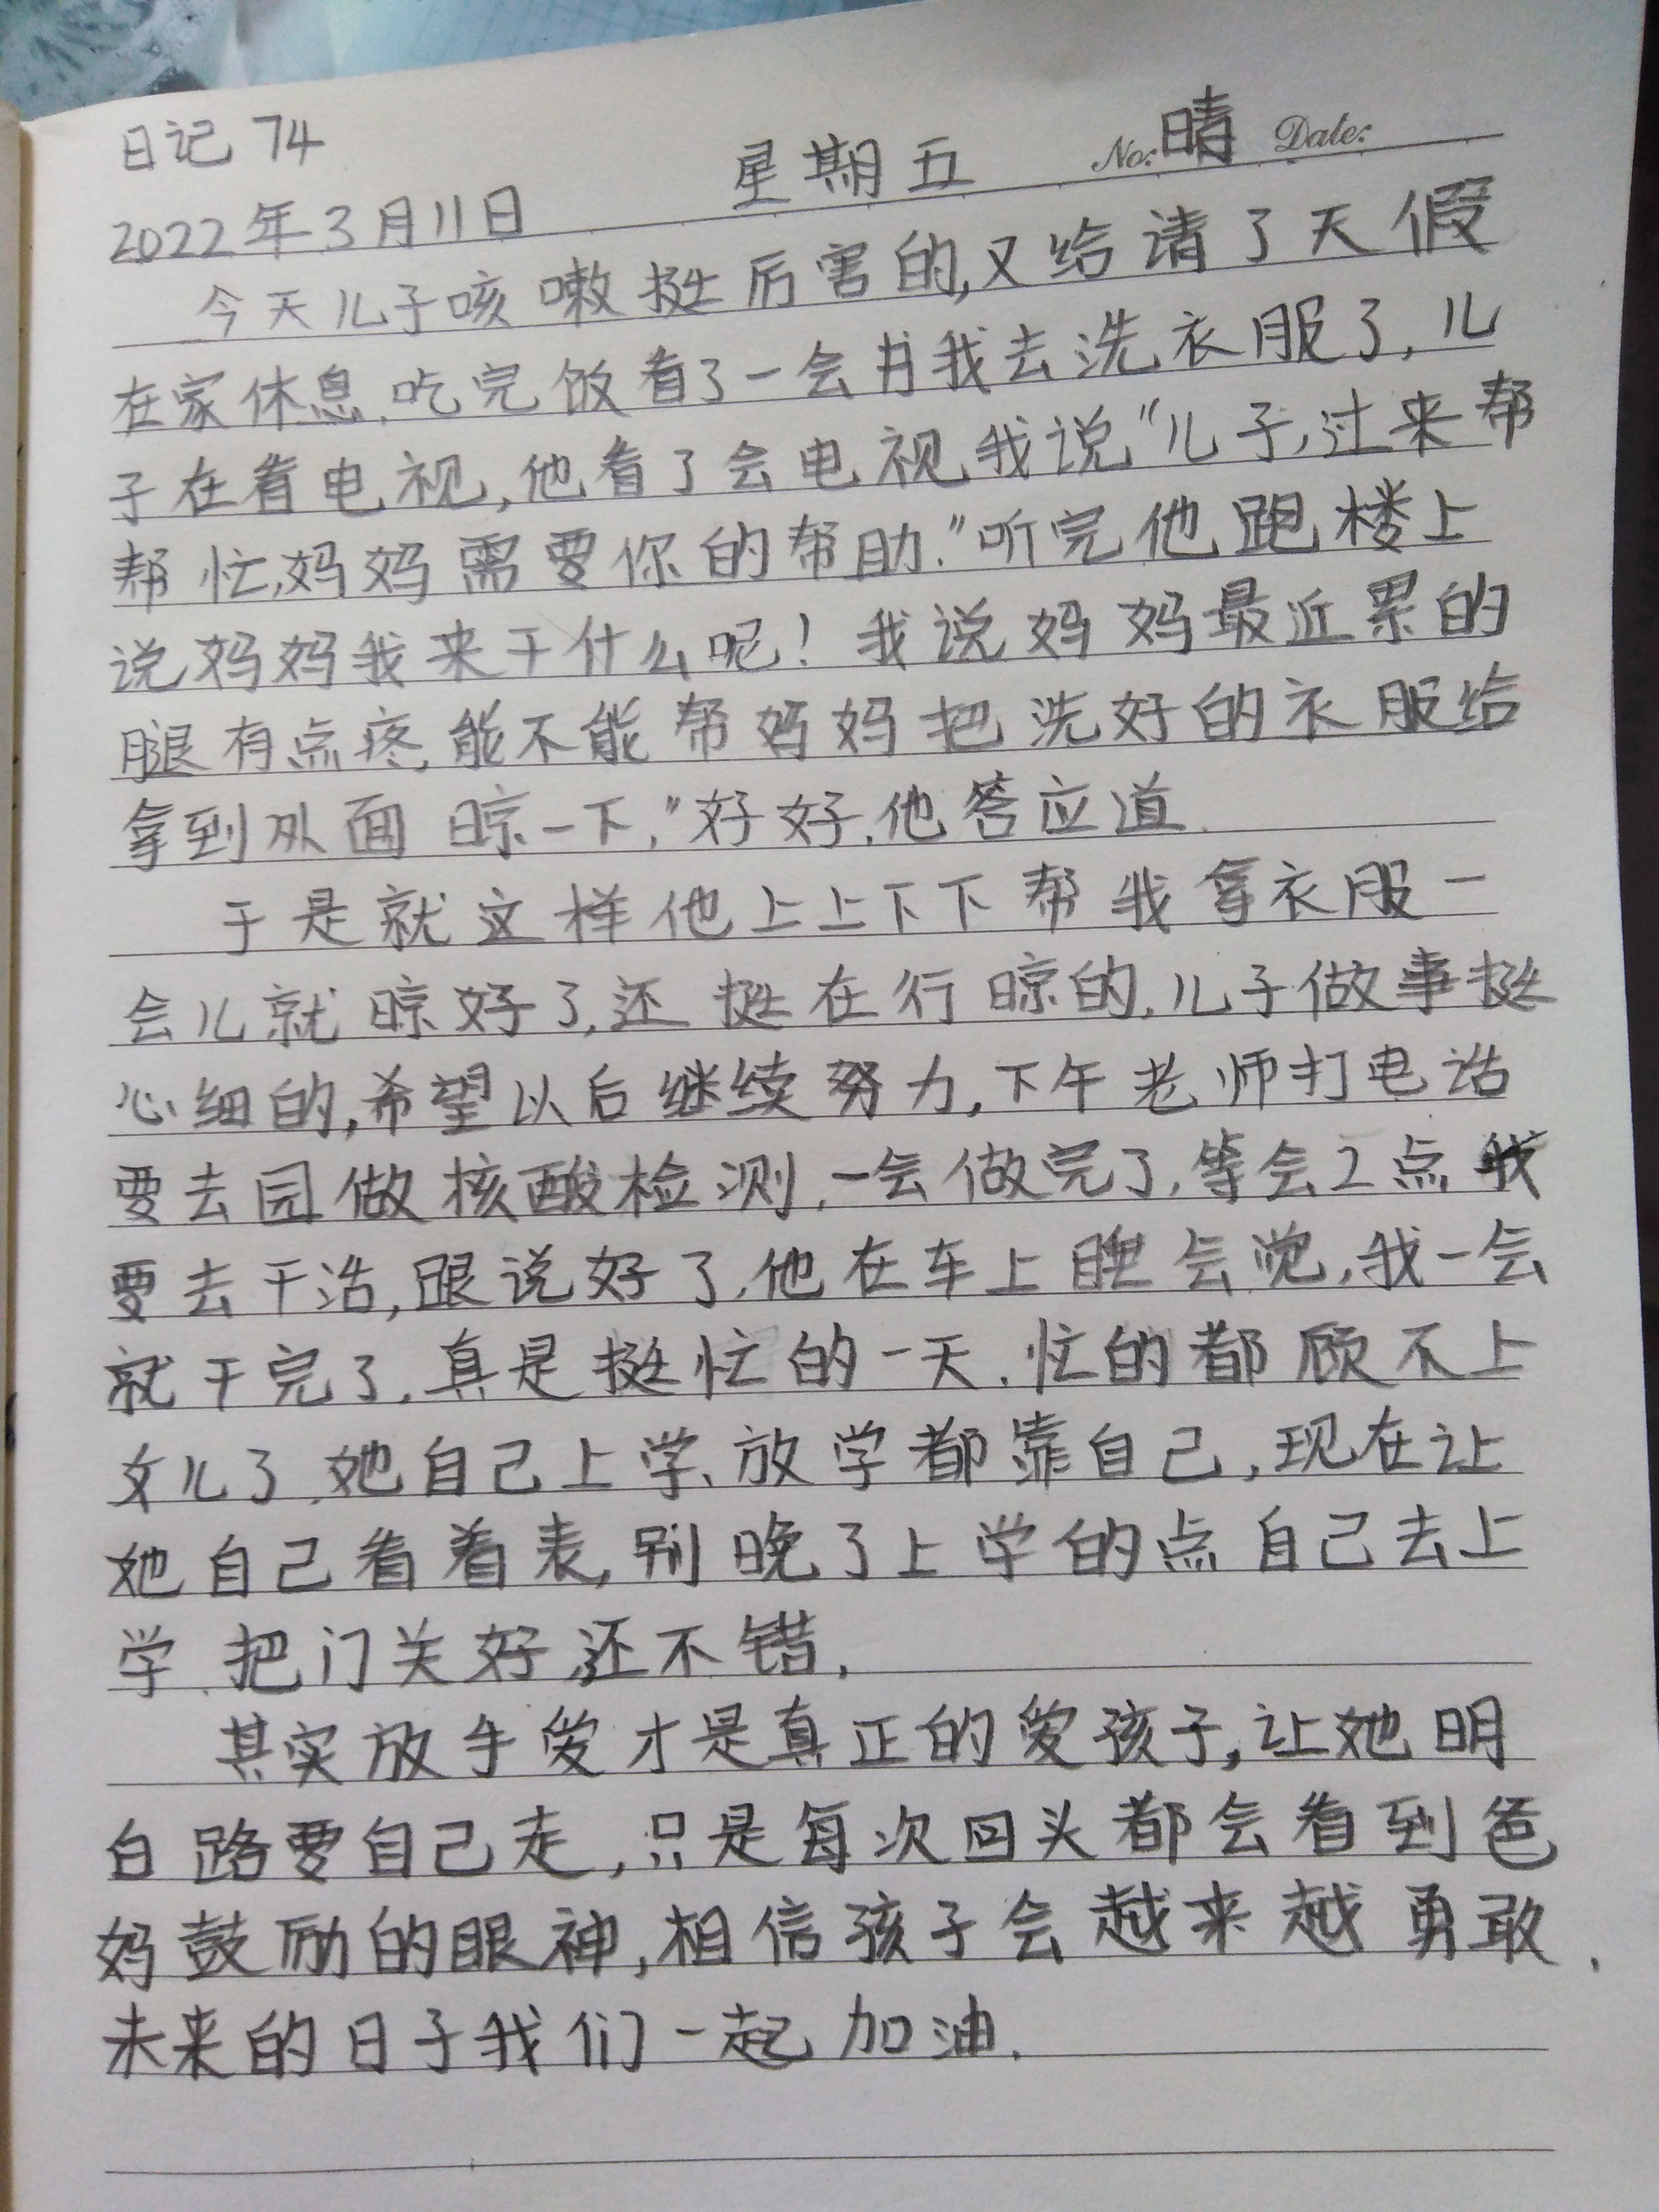 日记 74
星期五 No: 晴 Date:
2022年3月11日
今天儿子咳嗽挺厉害的,又给请了天假
在家休息,吃完饭看了一会书我去洗衣服了,儿
子在看电视,他看了会电视我说"儿子,过来帮
帮忙,妈妈需要你的帮助."听完他跑楼上
说妈妈我来干什么呢!我说妈妈最近累的
腿有点疼,能不能帮妈妈把洗好的衣服给
拿到外面晾一下,"好好,他答应道.
于是就这样他上上下下帮我拿衣服一
会儿就晾好了,还挺在行晾的,儿子做事挺
心细的,希望以后继续努力,下午老师打电话
要去园做核酸检测,一会做完了,等会2点我
要去干活,跟说好了,他在车上睡会觉,我一会
就干完了,真是挺忙的一天.忙的都顾不上
女儿了,她自己上学、放学都靠自己,现在让
她自己看着表,别晚了上学的点自己去上
学、把门关好,还不错,
其实放手爱才是真正的爱孩子,让她明
白路要自己走,只是每次回头都会看到爸
妈鼓励的眼神,相信孩子会越来越勇敢.
未来的日子我们一起加油.